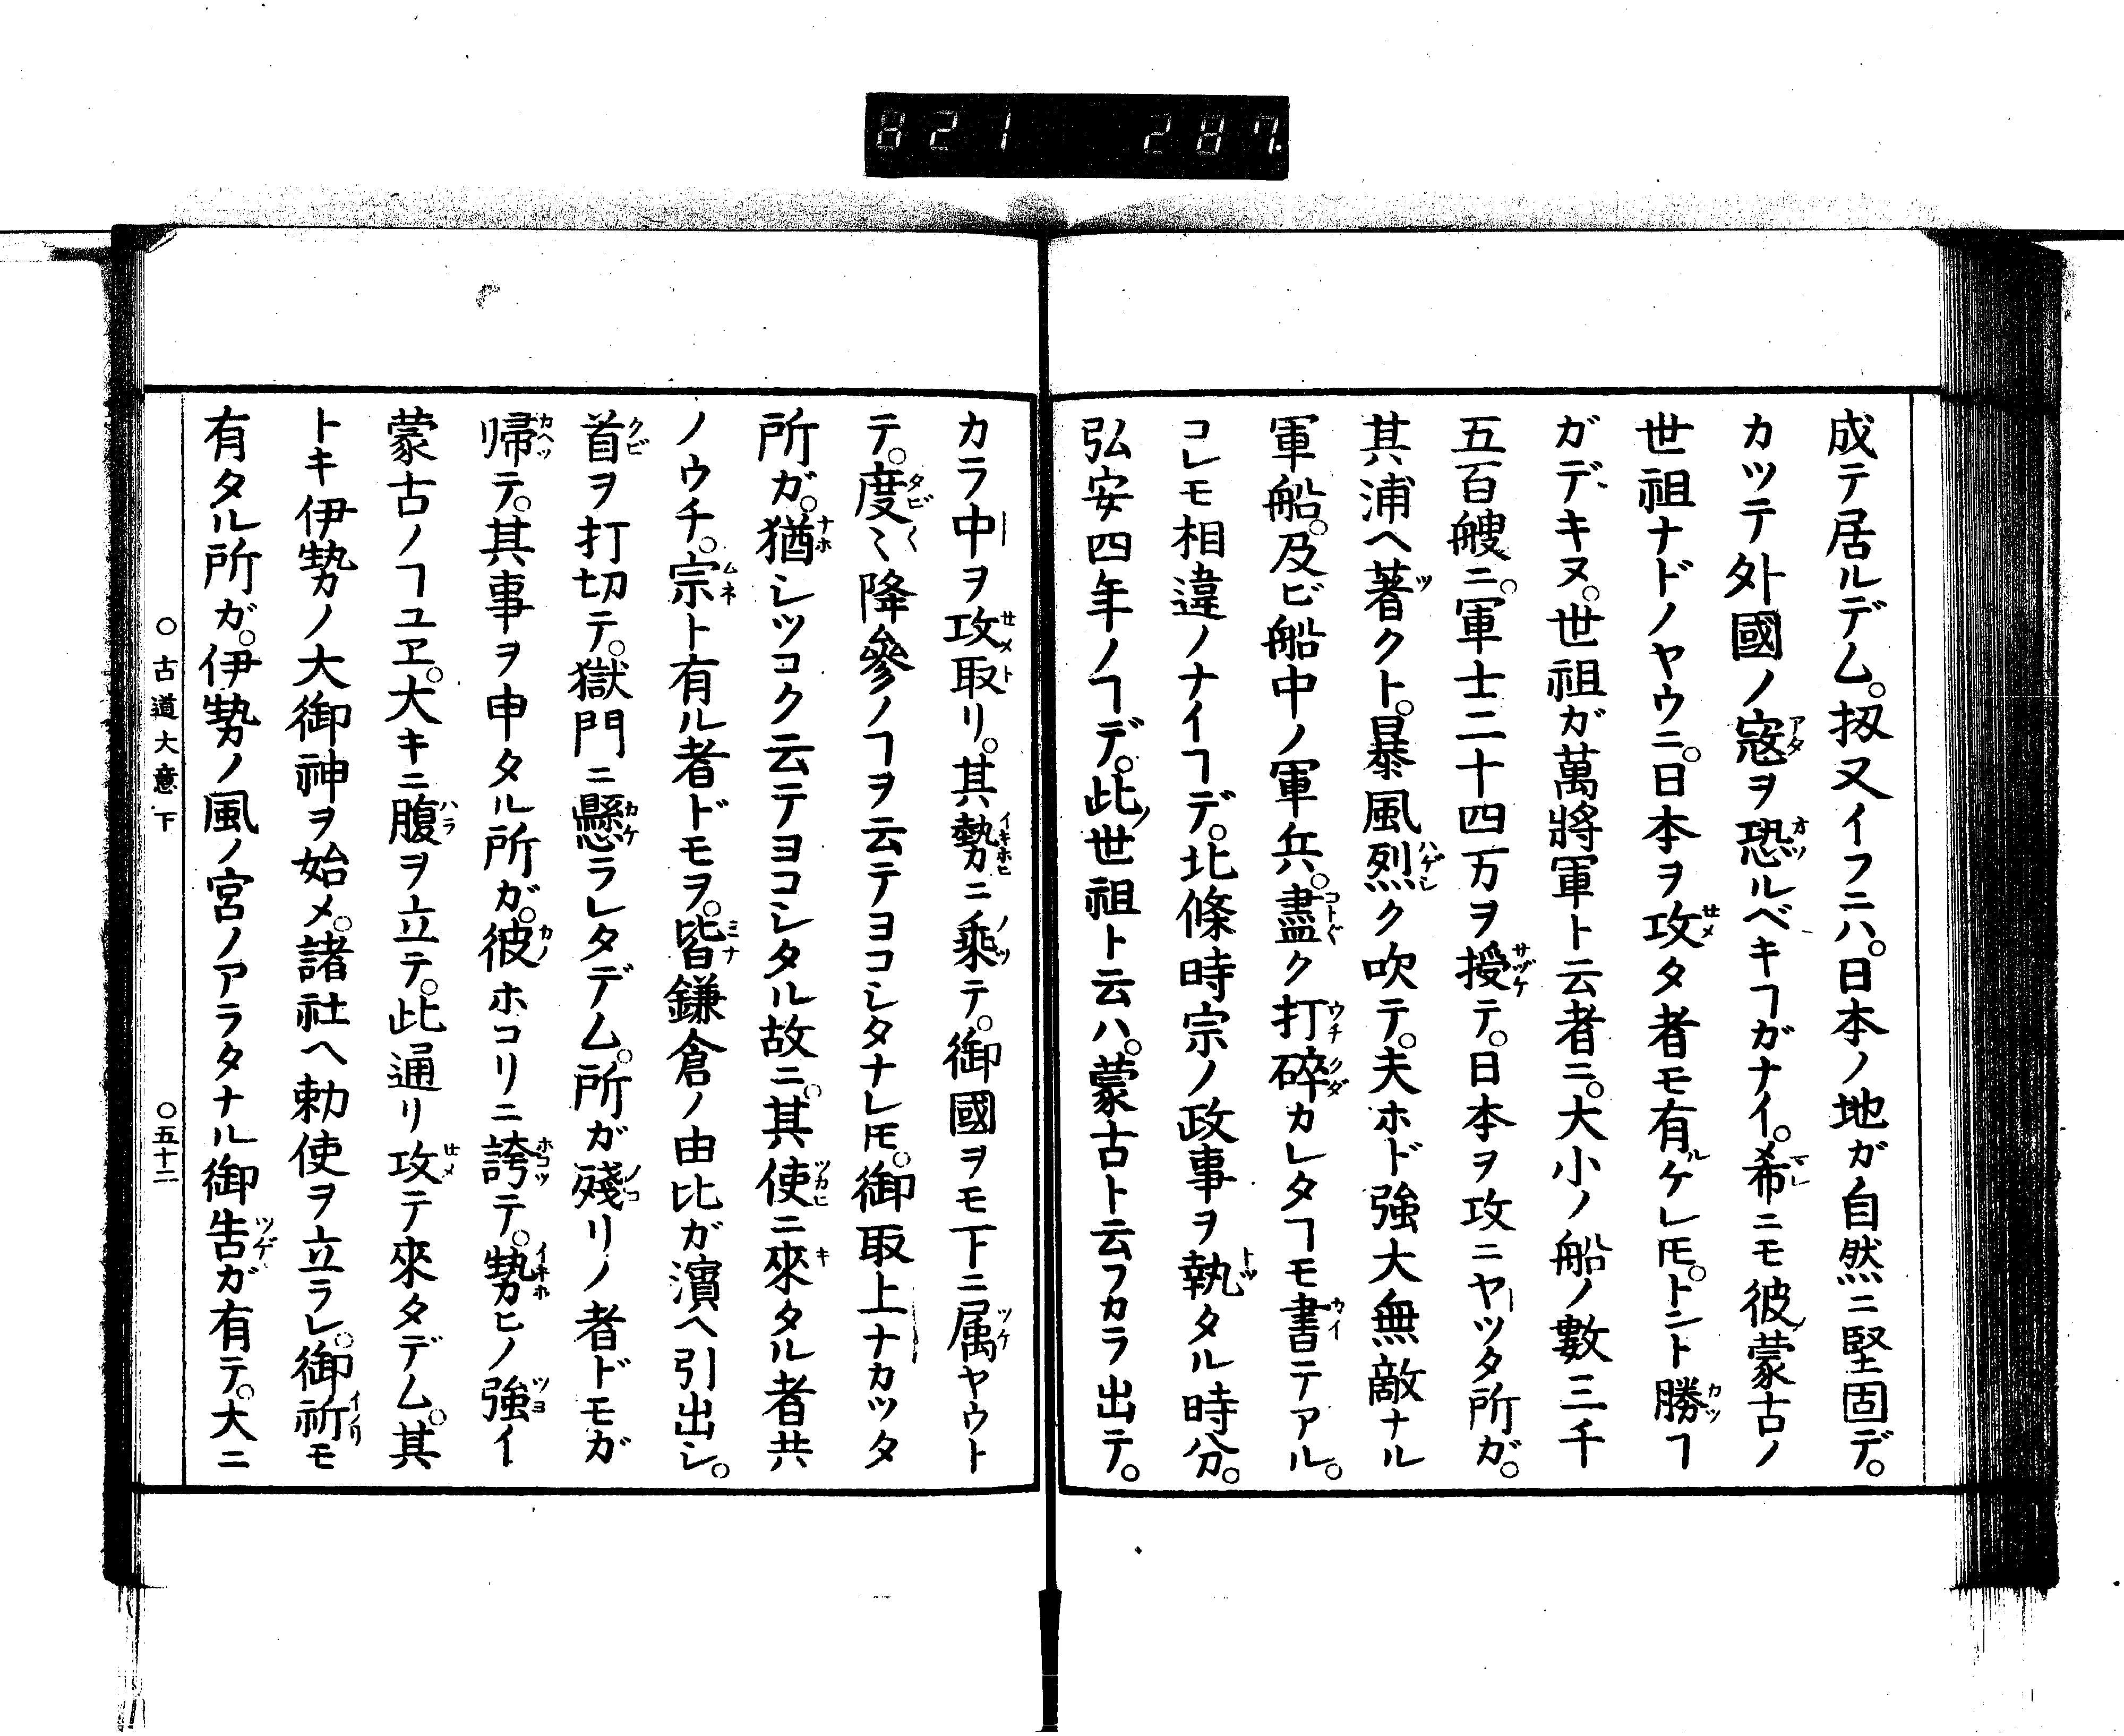 821 287.
成テ居ルデム。扨又イフニハ。日本ノ地ガ自然ニ堅固デ。
カツテ外國ノ寇ヲ恐ルベキヿガナイ。希ニモ彼蒙古ノ
世祖ナドノヤウニ。日本ヲ攻タ者モ有ケレ𪜈。トント勝ヿ
ガデキヌ。世祖ガ萬將軍ト云者ニ。大小ノ船ノ數三千
五百艘ニ。軍士二十四万ヲ授テ。日本ヲ攻ニヤツタ所ガ。
其浦ヘ著クト。暴風烈ク吹テ。夫ホド強大無敵ナル
軍船。及ビ船中ノ軍兵。盡ク打碎カレタヿモ書テアル。
コレモ相違ノナイヿデ。北條時宗ノ政事ヲ執タル時分。
弘安四年ノヿデ。此世祖ト云ハ。蒙古ト云フカラ出テ。
カラ中ヲ攻取リ。其勢ニ乘テ。御國ヲモ下ニ属ヤウト
テ。度〻降參ノヿヲ云テヨコシタナレ𪜈。御取上ナカツタ
所ガ。猶シツコク云テヨコシタル故ニ。其使ニ來タル者共
ノウチ。宗ト有ル者ドモヲ。皆鎌倉ノ由比ガ濱ヘ引出シ。
首ヲ打切テ。獄門ニ懸ラレタデム。所ガ殘リノ者ドモガ
帰テ。其事ヲ申タル所ガ。彼ホコリニ誇テ。勢ヒノ強イ
蒙古ノヿユヱ。大キニ腹ヲ立テ。此通リ攻テ來タデム。其
トキ伊勢ノ大御神ヲ始メ。諸社ヘ勅使ヲ立ラレ。御祈モ
有タル所ガ。伊勢ノ風ノ宮ノアラタナル御告ガ有テ。大ニ
○古道大意下 ○五十二